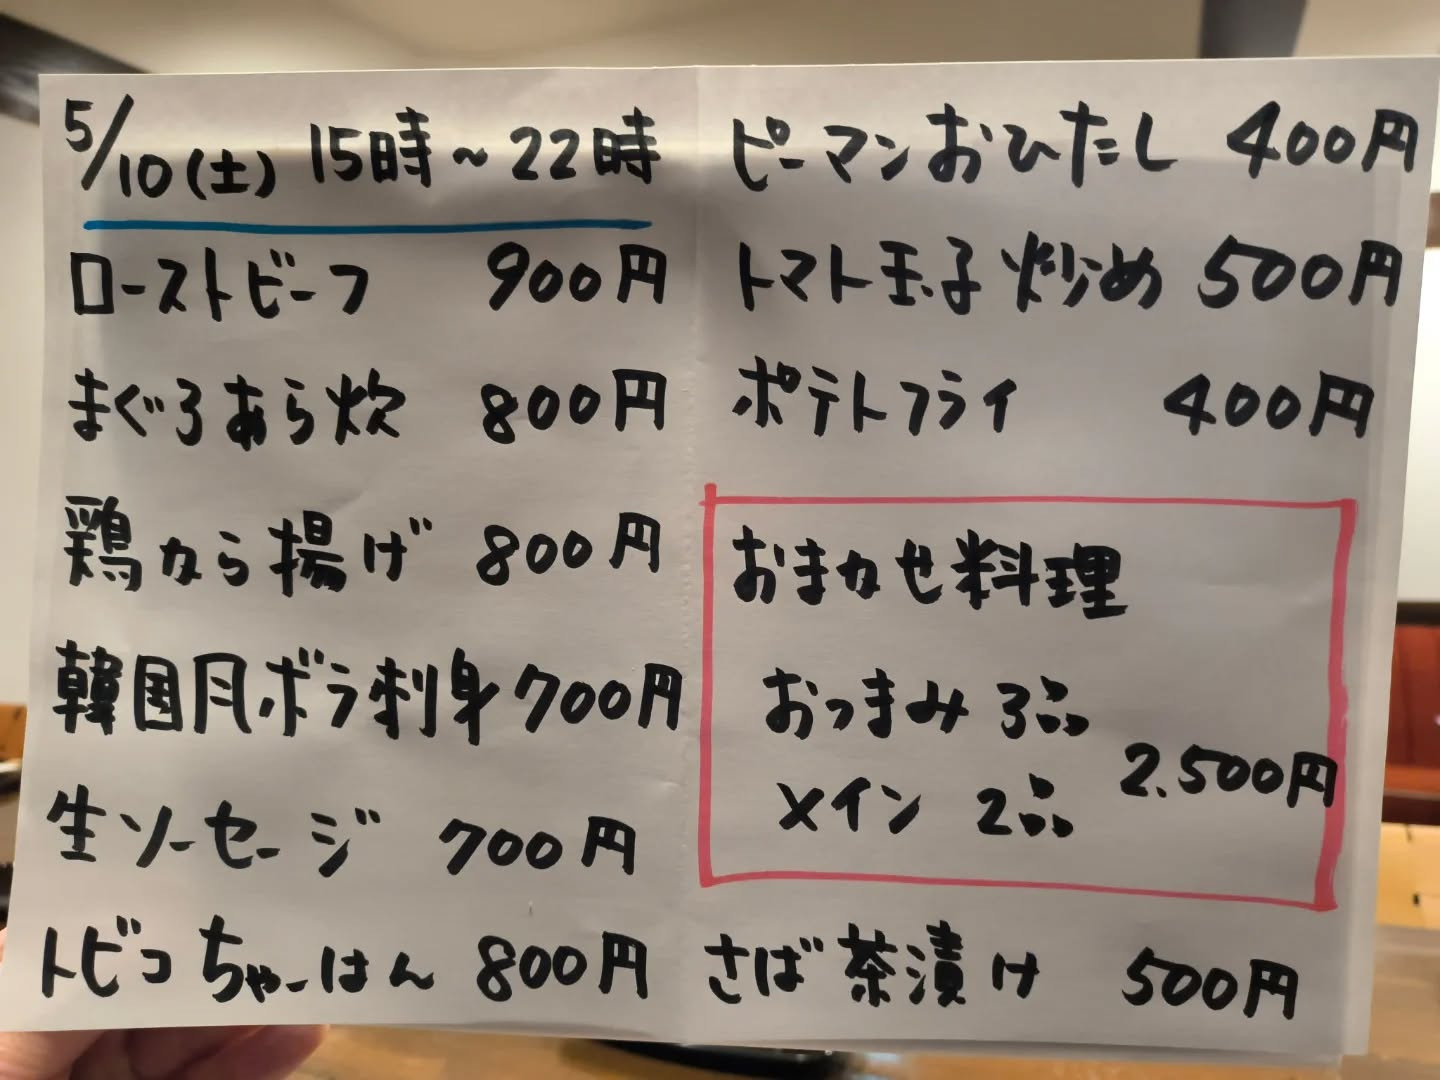 5/10(土) 15時~22時
ローストビーフ 900円
まぐろあら炊 800円
鶏から揚げ 800円
韓国風ボラ刺身 700円
生ソーセージ 700円
トビコちゃーはん 800円
ピーマンおひたし 400円
トマト玉子炒め 500円
ポテトフライ 400円
おまかせ料理
おつまみ 3品
メイン 2品
2.500円
さば茶漬け 500円